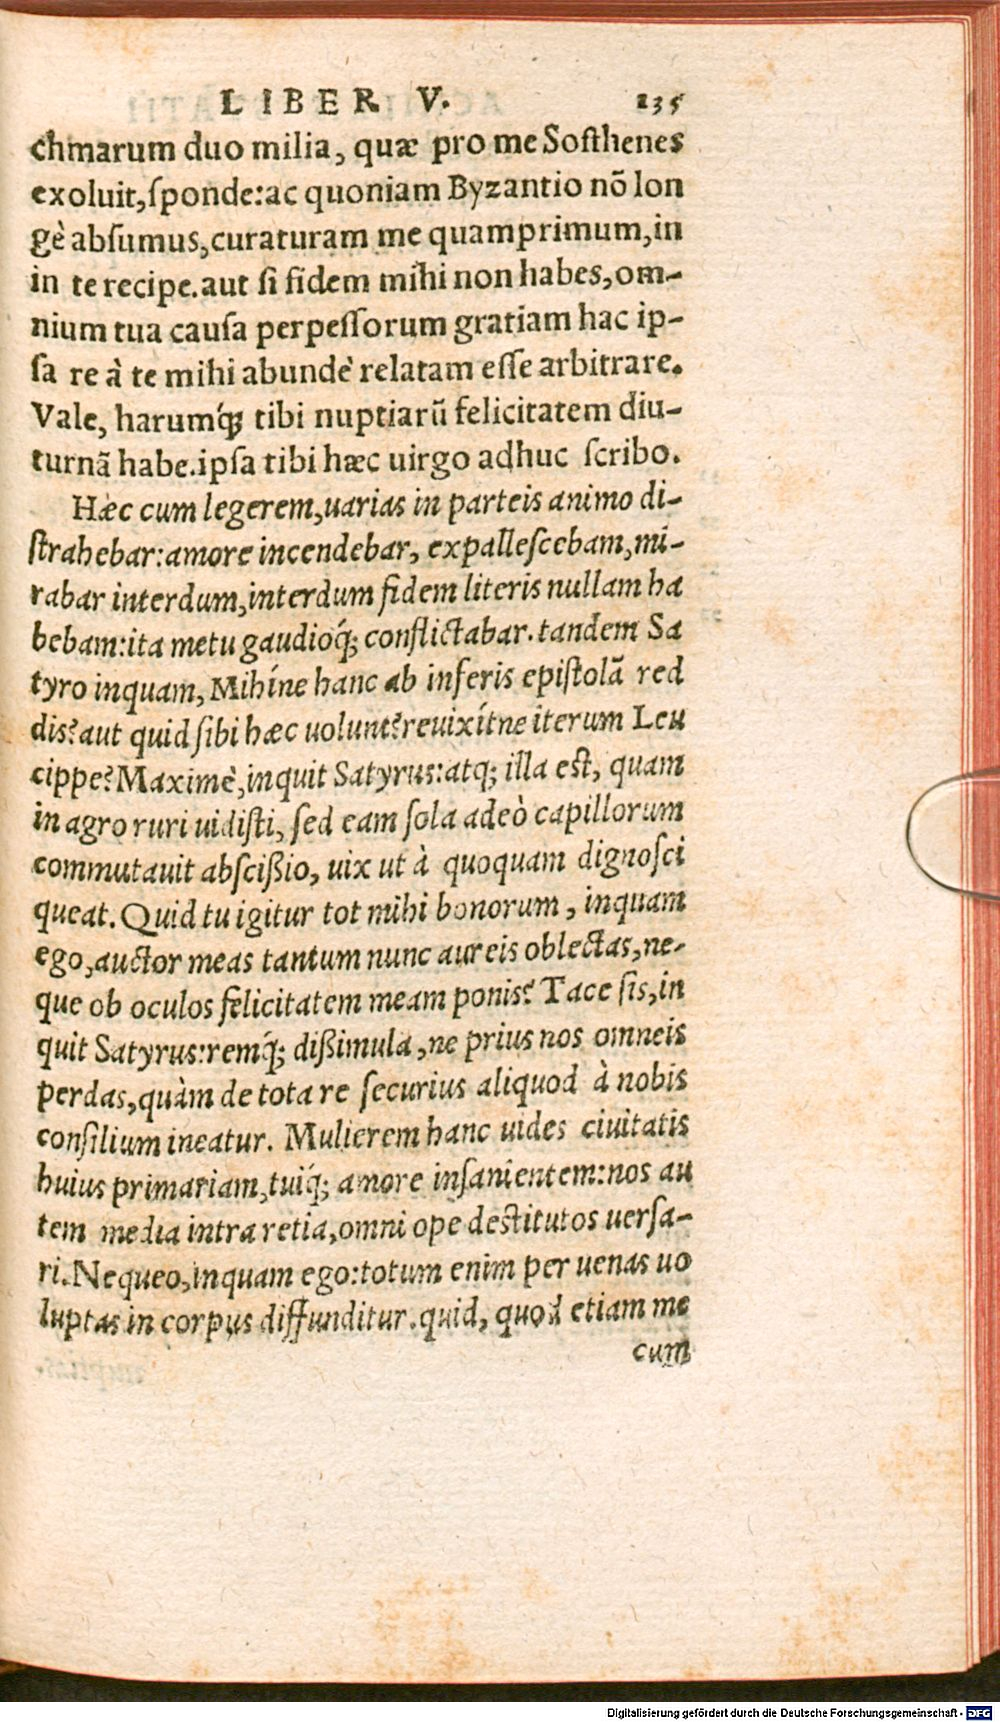 LIBER V. 135
chmarum duo milia, quæ pro me Sosthenes
exoluit, sponde: ac quoniam Byzantio nõ lon
gè absumus, curaturam me quamprimum, in
in te recipe. aut si fidem mihi non habes, om-
nium tua causa perpessorum gratiam hac ip-
sa re à te mihi abundè relatam esse arbitrare.
Vale, harumq́; tibi nuptiarũ felicitatem diu-
turnã habe. ipsa tibi hæc uirgo adhuc scribo.
Hæc cum legerem, uarias in parteis animo di-
strahebar: amore incendebar, expallescebam, mi-
rabar interdum, interdum fidem literis nullam ha
bebam: ita metu gaudioq́; conflictabar. tandem Sa
tyro inquam, Mihíne hanc ab inferis epistolã red
dis? aut quid sibi hæc uolunt? reuixítne iterum Leu
cippe? Maximè, inquit Satyrus: atq; illa est, quam
in agro ruri uidisti, sed eam sola adeò capillorum
commutauit abscißio, uix ut à quoquam dignosci
queat. Quid tu igitur tot mihi bonorum, inquam
ego, auctor meas tantum nunc aureis oblectas, ne-
que ob oculos felicitatem meam ponis? Tace sis, in
quit Satyrus: remq́; dißimula, ne prius nos omneis
perdas, quàm de tota re securius aliquod à nobis
consilium ineatur. Mulierem hanc uides ciuitatis
huius primariam, tuiq́; amore insanientem: nos au
tem media intra retia, omni ope destitutos uersa-
ri. Nequeo, inquam ego: totum enim per uenas uo
luptas in corpus diffunditur. quid, quod etiam me
cum
Digitalisierung gefördert durch die Deutsche Forschungsgemeinschaft - DFG